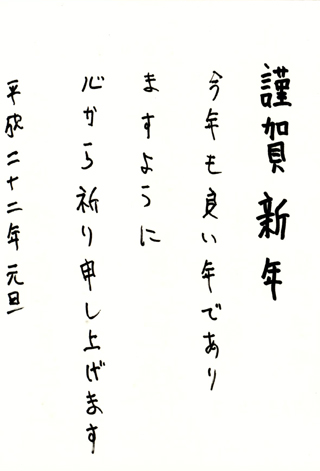 謹賀新年
今年も良い年であり
ますように
心から祈り申し上げます
平成二十二年 元旦